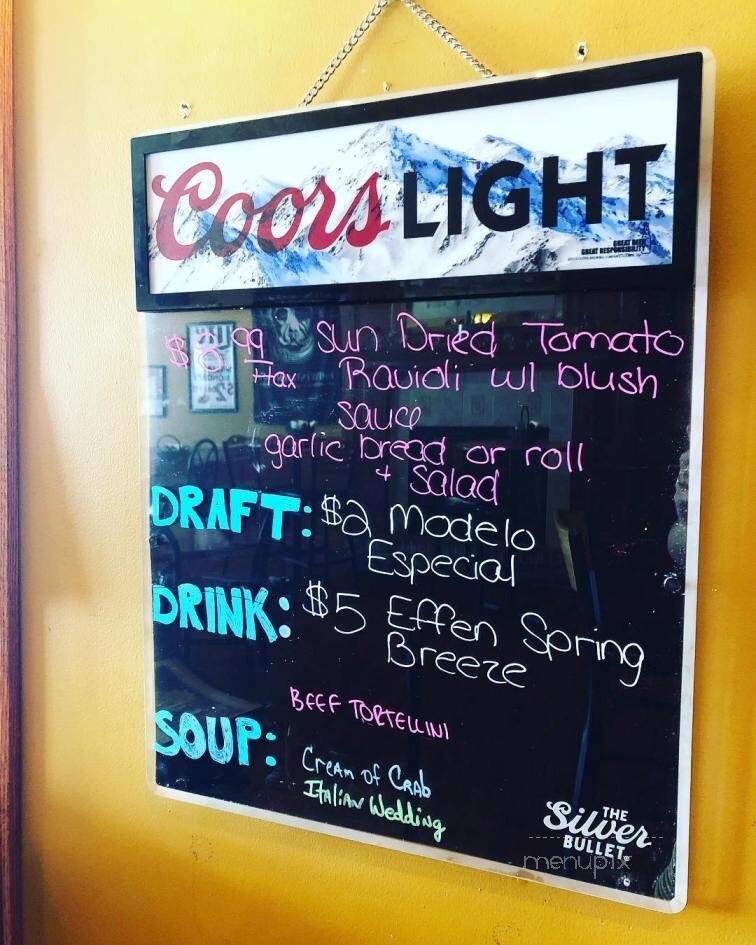 Coors LIGHT
GREAT BEER
GREAT RESPONSIBILITY
$8.99 Sun Dried Tomato
+tax Ravioli w/ blush
sauce
garlic bread or roll
+ salad
DRAFT: $2 Modelo
Especial
DRINK: $5 Effen Spring
Breeze
BEEF TORTELLINI
SOUP:
Cream of Crab
Italian Wedding
THE
Silver
BULLET
menupix